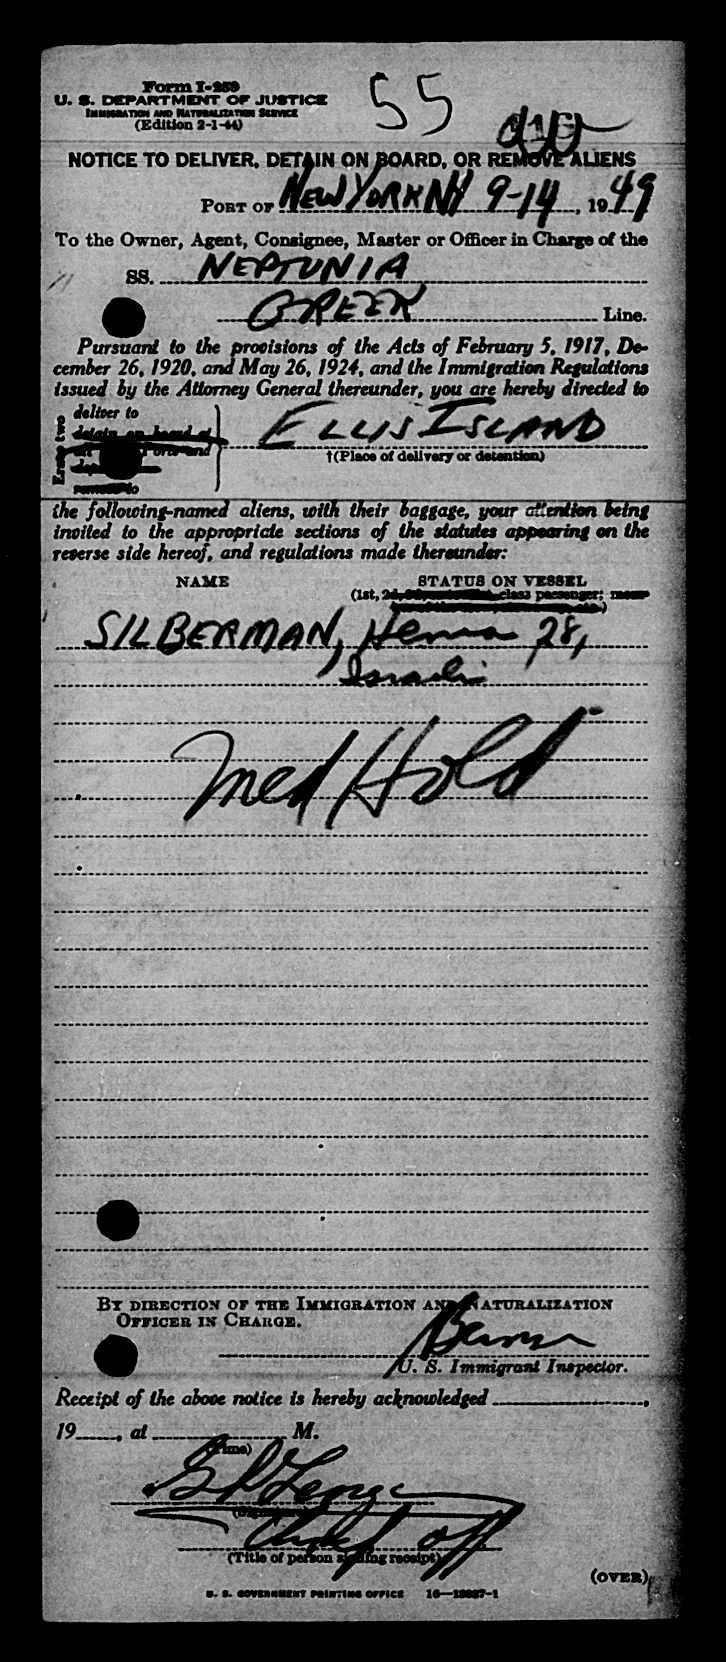 Form I-259
55
U. S. DEPARTMENT OF JUSTICE
IMMIGRATION AND NATURALIZATION SERVICE
(Edition 2-1-44)
NOTICE TO DELIVER, DETAIN ON BOARD, OR REMOVE ALIENS
PORT OF NEW YORK NY 9-14, 1949
To the Owner, Agent, Consignee, Master or Officer in Charge of the
SS. NEPTUNIA
GREEK Line.
Pursuant to the provisions of the Acts of February 5, 1917, De-
cember 26, 1920, and May 26, 1924, and the Immigration Regulations
issued by the Attorney General thereunder, you are hereby directed to
Erase two
deliver to
detain on board at
ELLIS ISLAND
†(Place of delivery or detention)
the following-named aliens, with their baggage, your attention being
invited to the appropriate sections of the statutes appearing on the
reverse side hereof, and regulations made thereunder:
NAME STATUS ON VESSEL
(1st, 2d, class passenger;
SILBERMAN, 28,
Israeli
Med Hold
BY DIRECTION OF THE IMMIGRATION AND NATURALIZATION
OFFICER IN CHARGE.
U. S. Immigrant Inspector.
Receipt of the above notice is hereby acknowledged ,
19 , at M.
(Time)
Chief off
(Title of person signing receipt)
(OVER)
U. S. GOVERNMENT PRINTING OFFICE